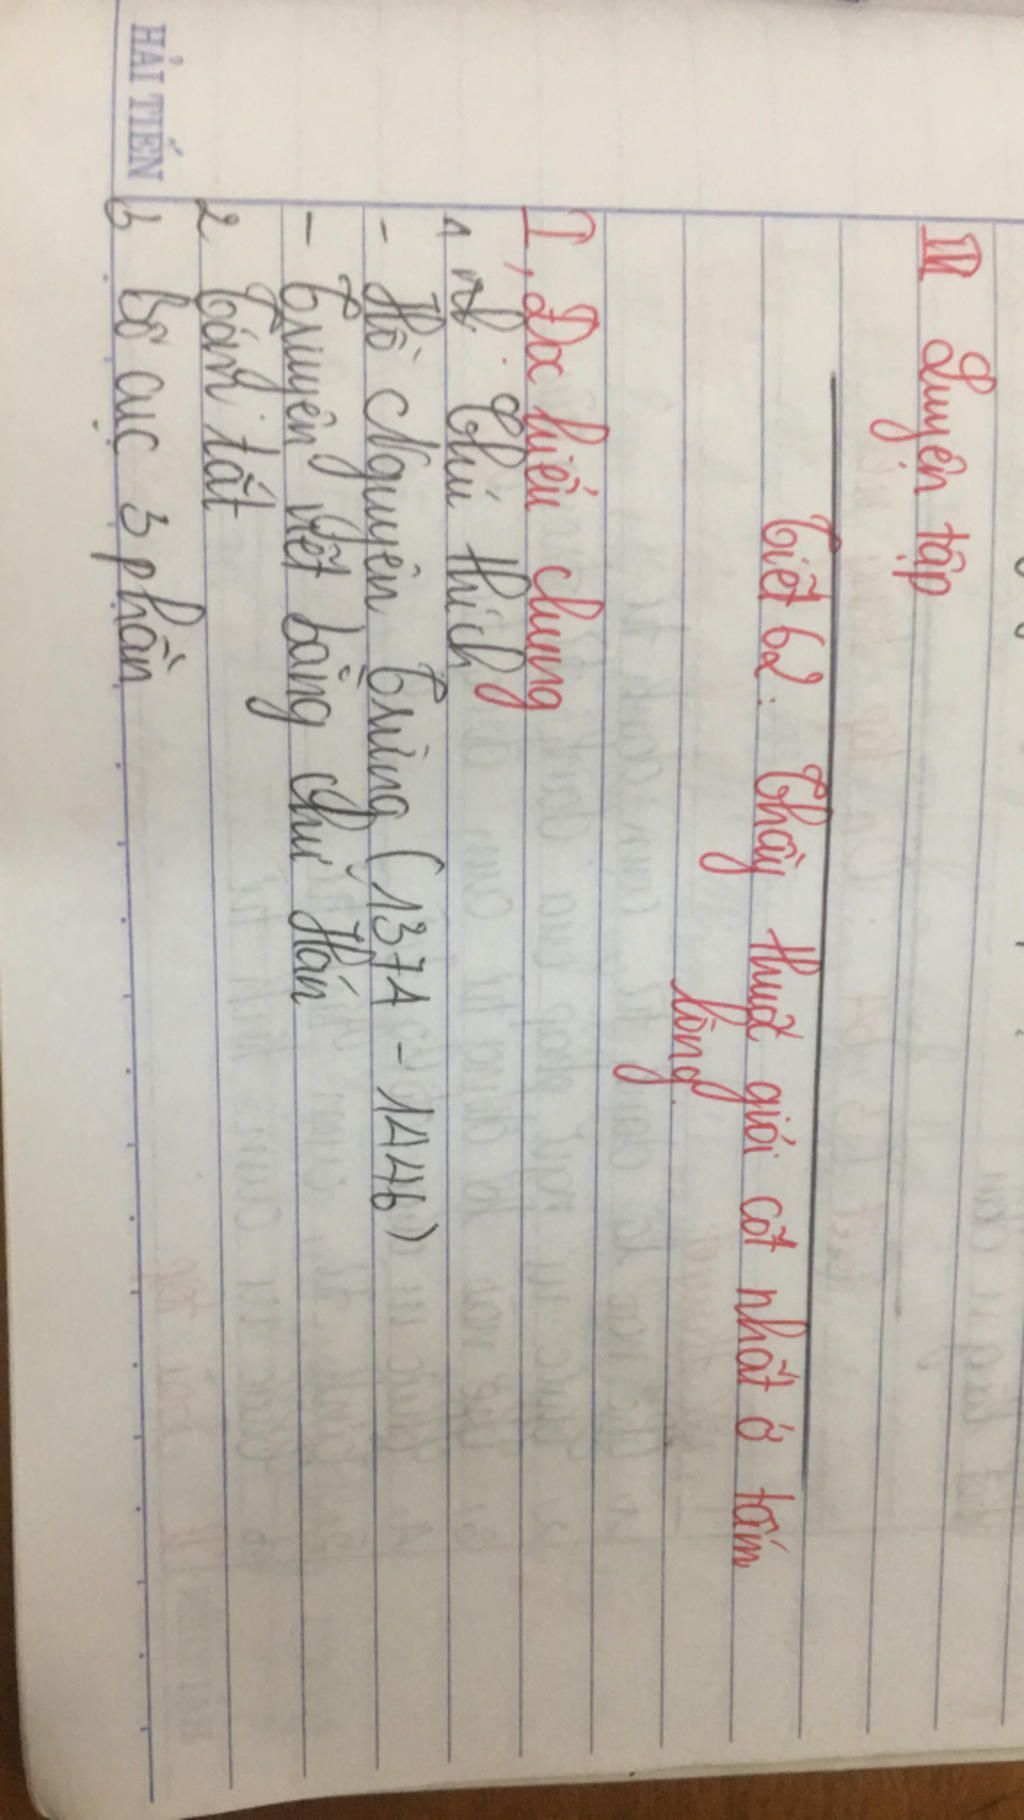 III Luyện tập
Tiết 62: Thầy thuốc giỏi cốt nhất ở tấm
lòng.
I, Đọc hiểu chung
1 Chú thích
- Hồ Nguyên Trừng (1374 - 1446)
- Truyện viết bằng chữ Hán
2 Tóm tắt
3 bố cục 3 phần
HẢI TIẾN